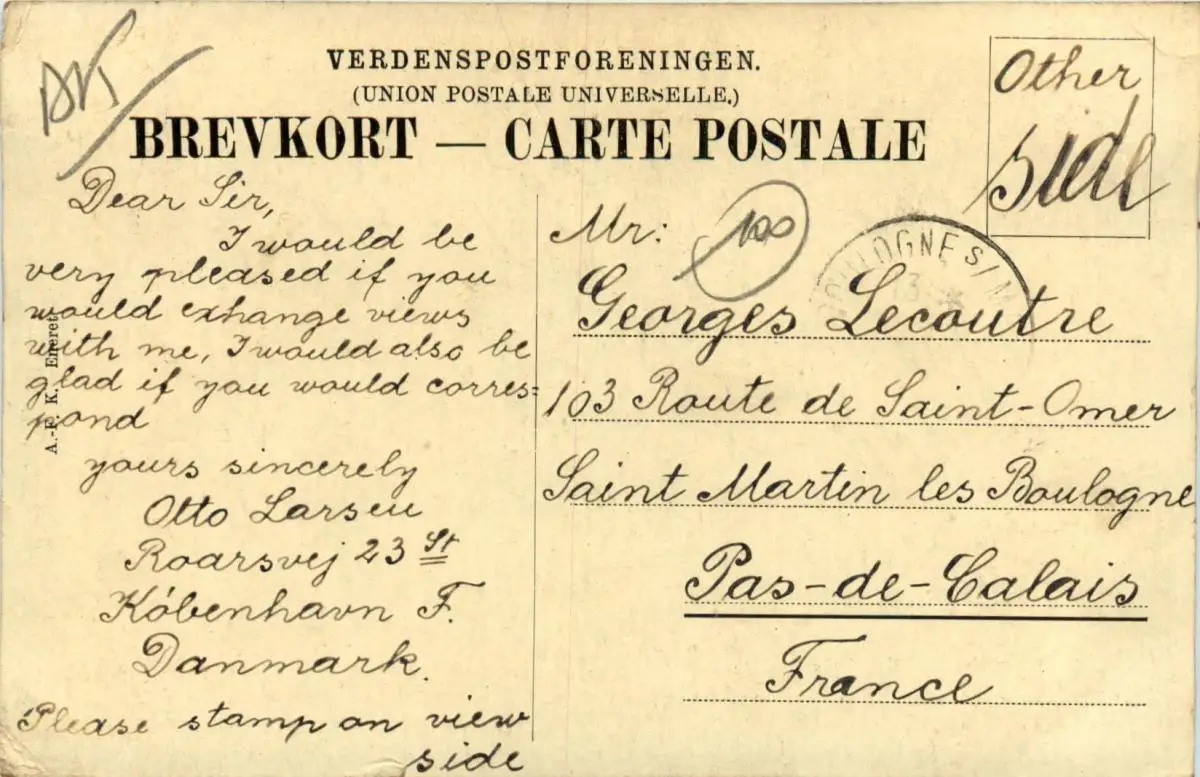 VERDENSPOSTFORENINGEN.
(UNION POSTALE UNIVERSELLE.)
BREVKORT — CARTE POSTALE
Other
side
Dear Sir,
I would be
very pleased if you
would exhange views
with me, I would also be
glad if you would corres=
pond
yours sincerely
Otto Larsen
Roarsvej 23 St
København F.
Danmark.
Please stamp on view
side
A.-F. K. Eneret.
Mr:
100
Georges Lecoutre
103 Route de Saint-Omer
Saint Martin les Boulogne
Pas-de-Calais
France
BOULOGNE S/M